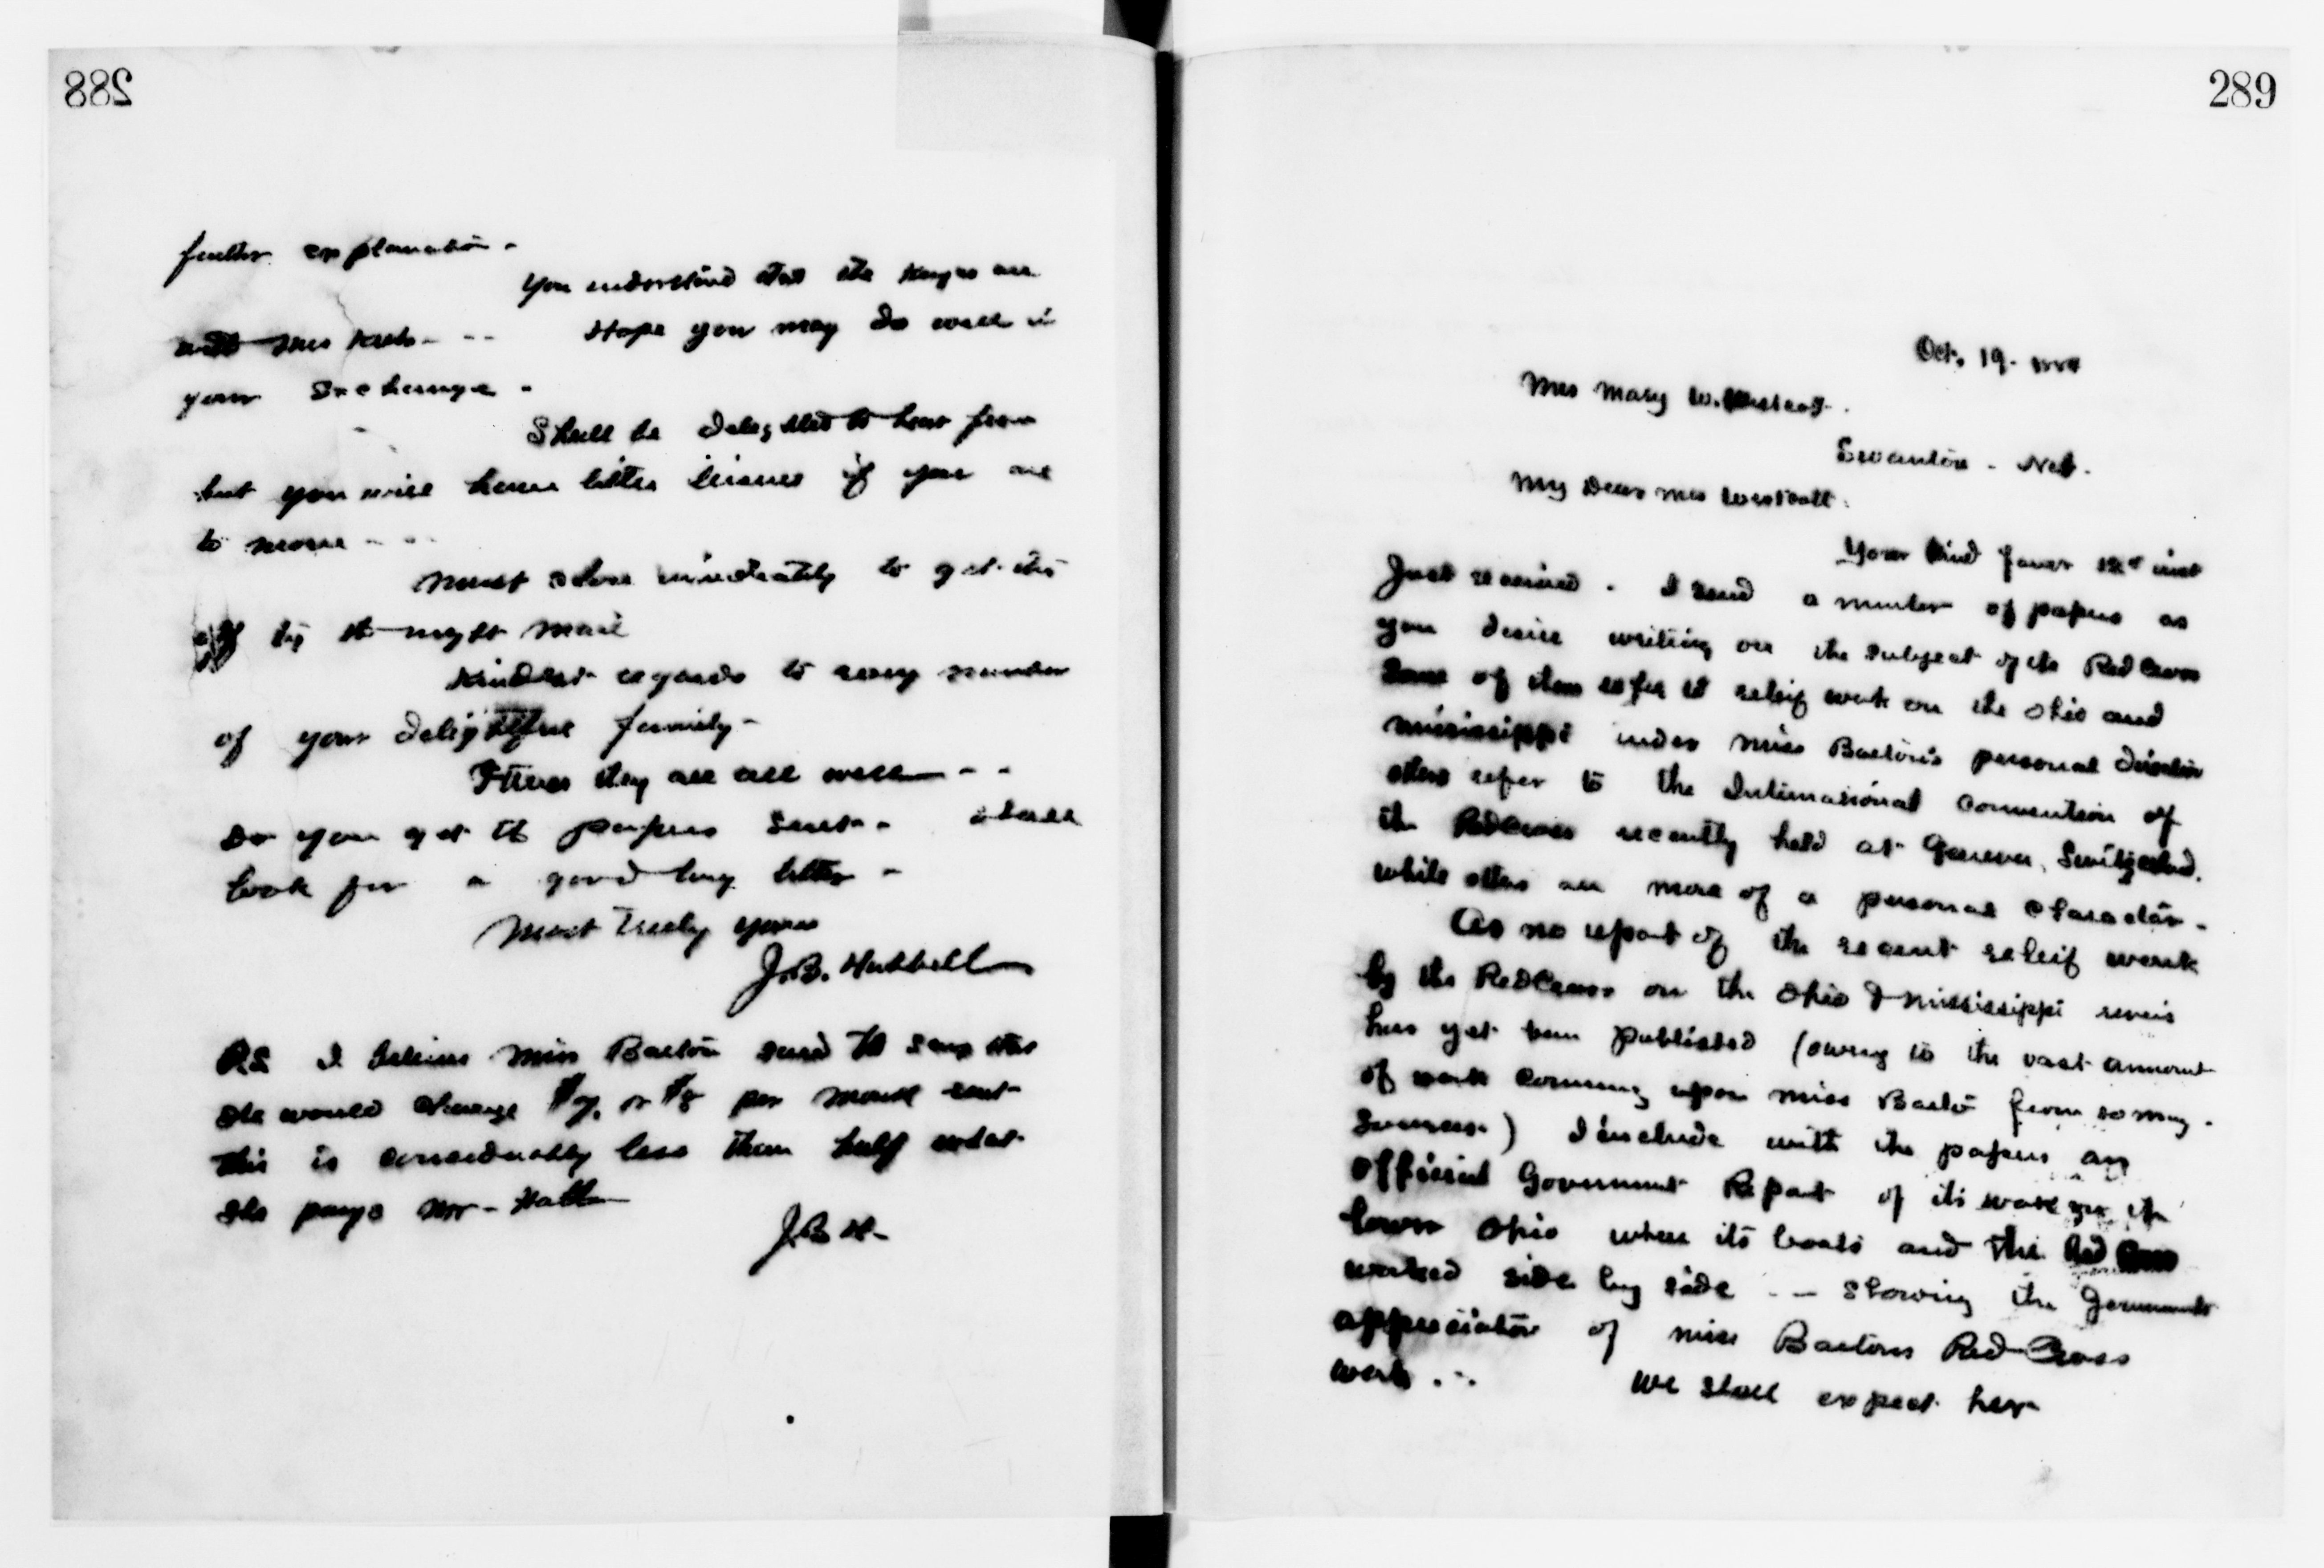 288
further explanation -
You understand that the Keys are
with Mrs - -- Hope you may do well in
your Exchange -
Shall be delighted to hear from
but you will have little leisure if you are
to move - - -
Must close immediately to get this
off by the night mail
Kindest regards to every member
of your delightful family -
I trust they are all well - -
Do you get the papers sent - Shall
look for a good long letter -
Most Truly yours
J.B. Hubbell
P.S. I believe Miss Barton said to say that
she would charge $7. or $8 per month rent
this is considerably less than half what
she pays Mr - Hall
J.B.H.
289
Oct. 19 - 1884
Mrs Mary W. Westcott.
Swanton - Neb.
My Dear Mrs Westcott.
Your kind favor inst
Just received. I send a number of papers as
you desire writing on the subject of the Red Cross
Some of them refer to releif work on the Ohio and
Mississippi under Miss Barton's personal direction
others refer to the International Convention of
the Red Cross recently held at Geneva, Switzerland.
while others are more of a personal character -
As no report of the recent releif work
by the Red Cross on the Ohio & Mississippi rivers
has yet been published (owing to the vast amount
of work coming upon Miss Barton from so many
Sources.) I include with the papers an
Official Government Report of its work on the
lower Ohio where its boats and the Red Cross
worked side by side - - showing the Governments
appreciation of Miss Bartons Red Cross
work. - We shall expect her